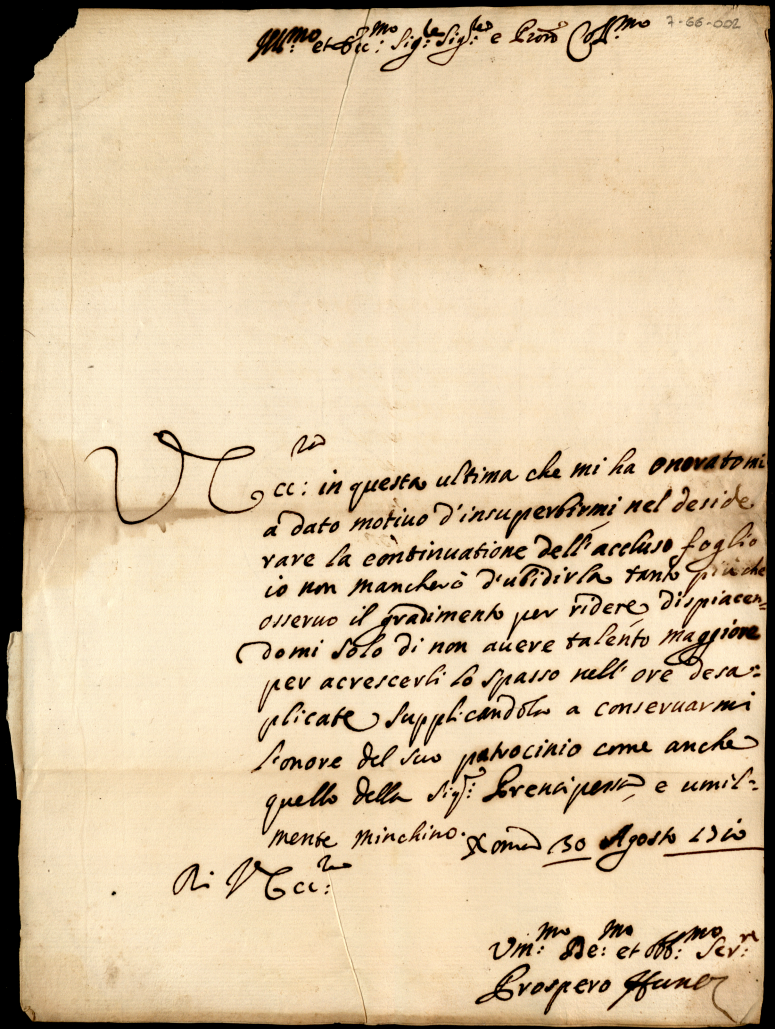 7-66-002
Ill:mo et Ecc:mo Sig:re Sig:re e Pron Coll:mo
V Ecc:za in questa ultima che mi ha onorato mi
a dato motiuo d'insuperbirmi nel deside
rare la continuatione dell'accluso foglio
io non mancherò d'ubidirla tanto più che
osseruo il gradimento per ridere, dispiacen=
domi solo di non auere talento maggiore
per acrescerli lo spasso nell'ore desa=
plicate supplicandola a conseruarmi
l'onore del suo patrocinio come anche
quello della Sig:ra Prencipessa, e umil=
mente m'inchino. Roma 30 Agosto 1710
Di V Ecc:za
Um:mo De:mo et obb:mo Ser:re
Prospero